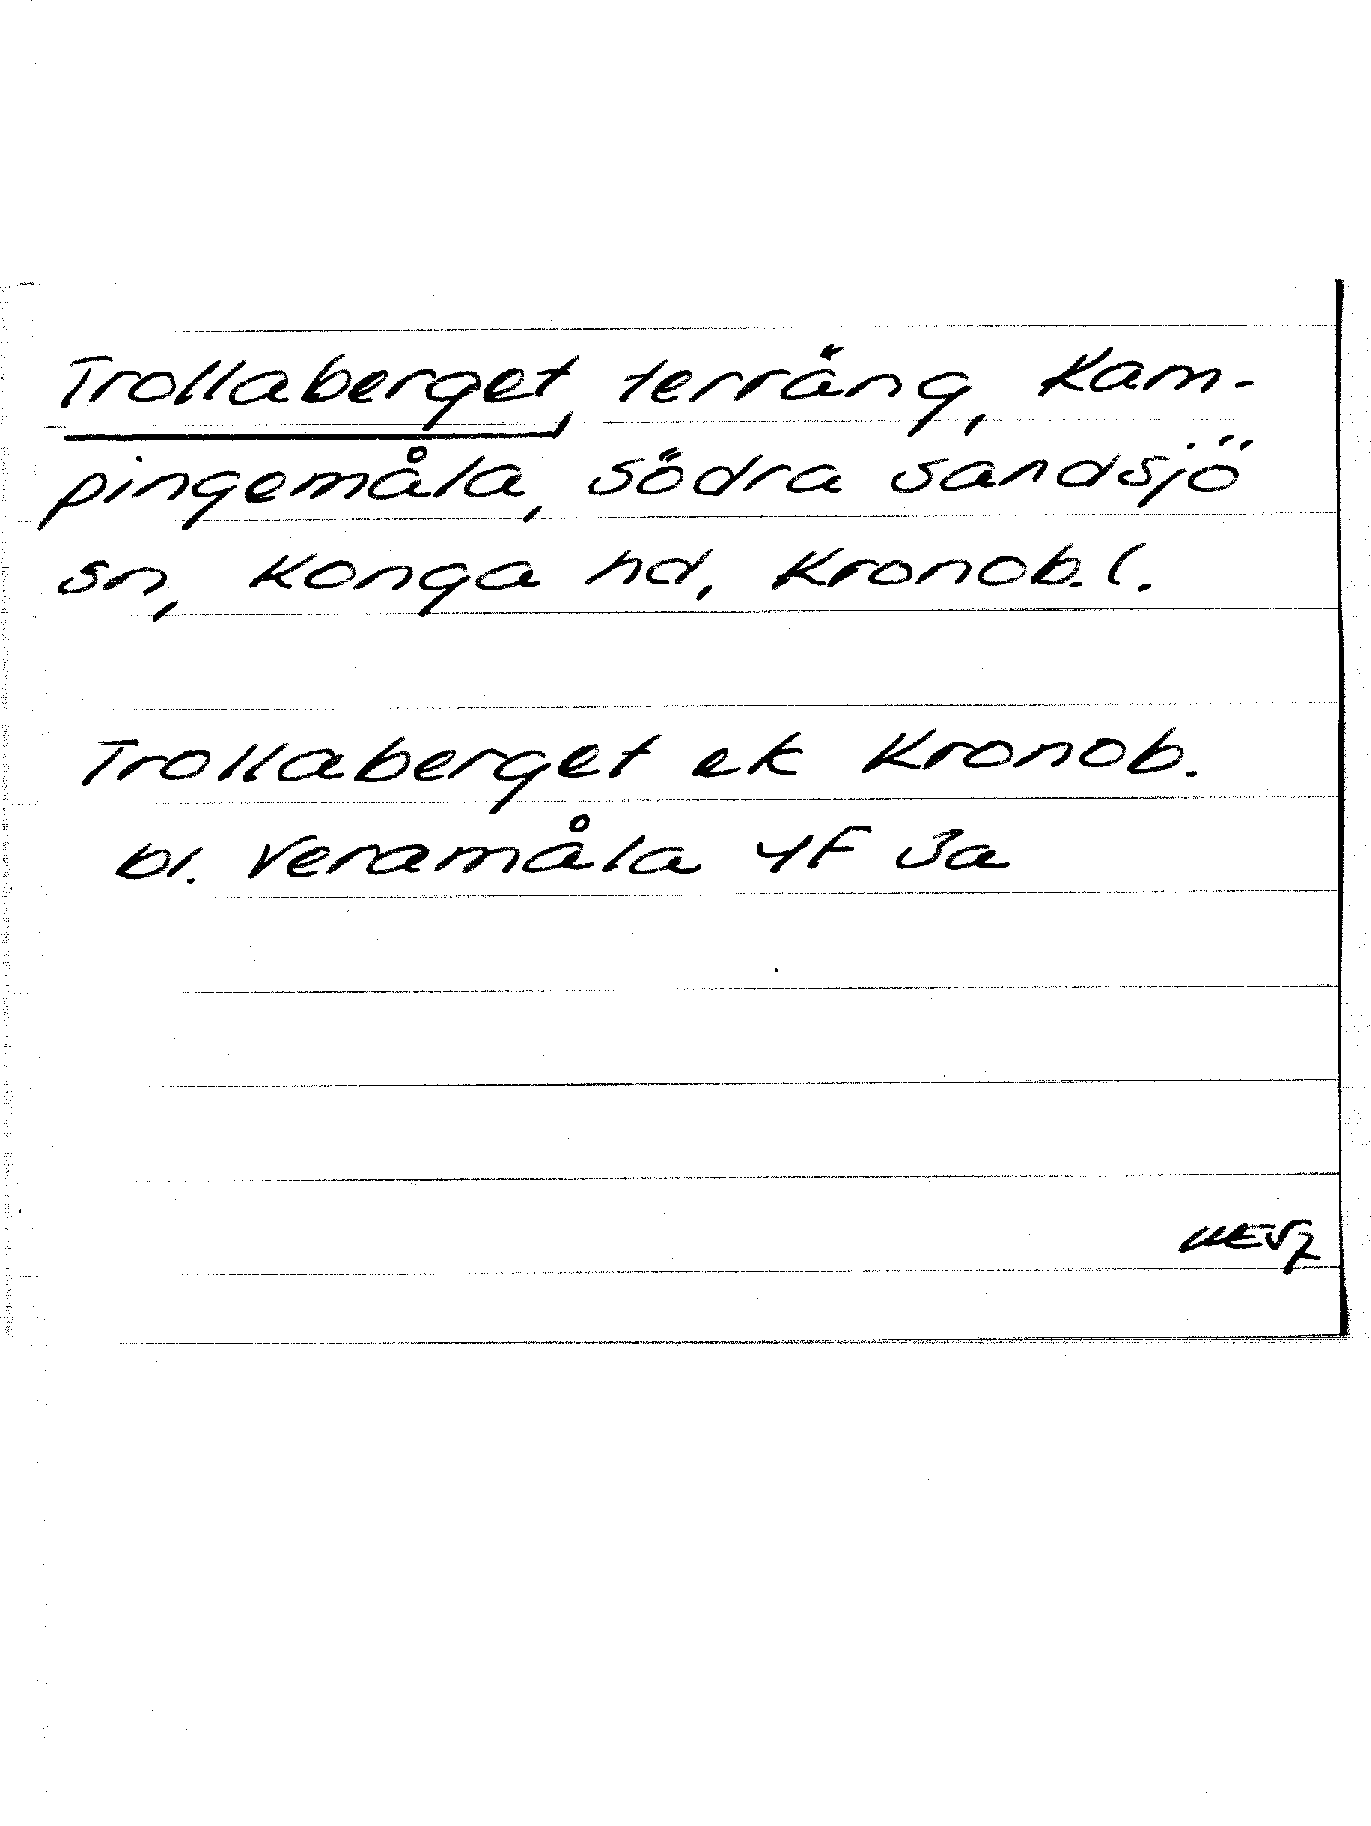 Trollaberget, terräng, Kam-
pingemåla, Södra Sandsjö
sn, Konga hd, Kronob. l.
Trollaberget ek Kronob.
bl. Veramåla 4F 3a